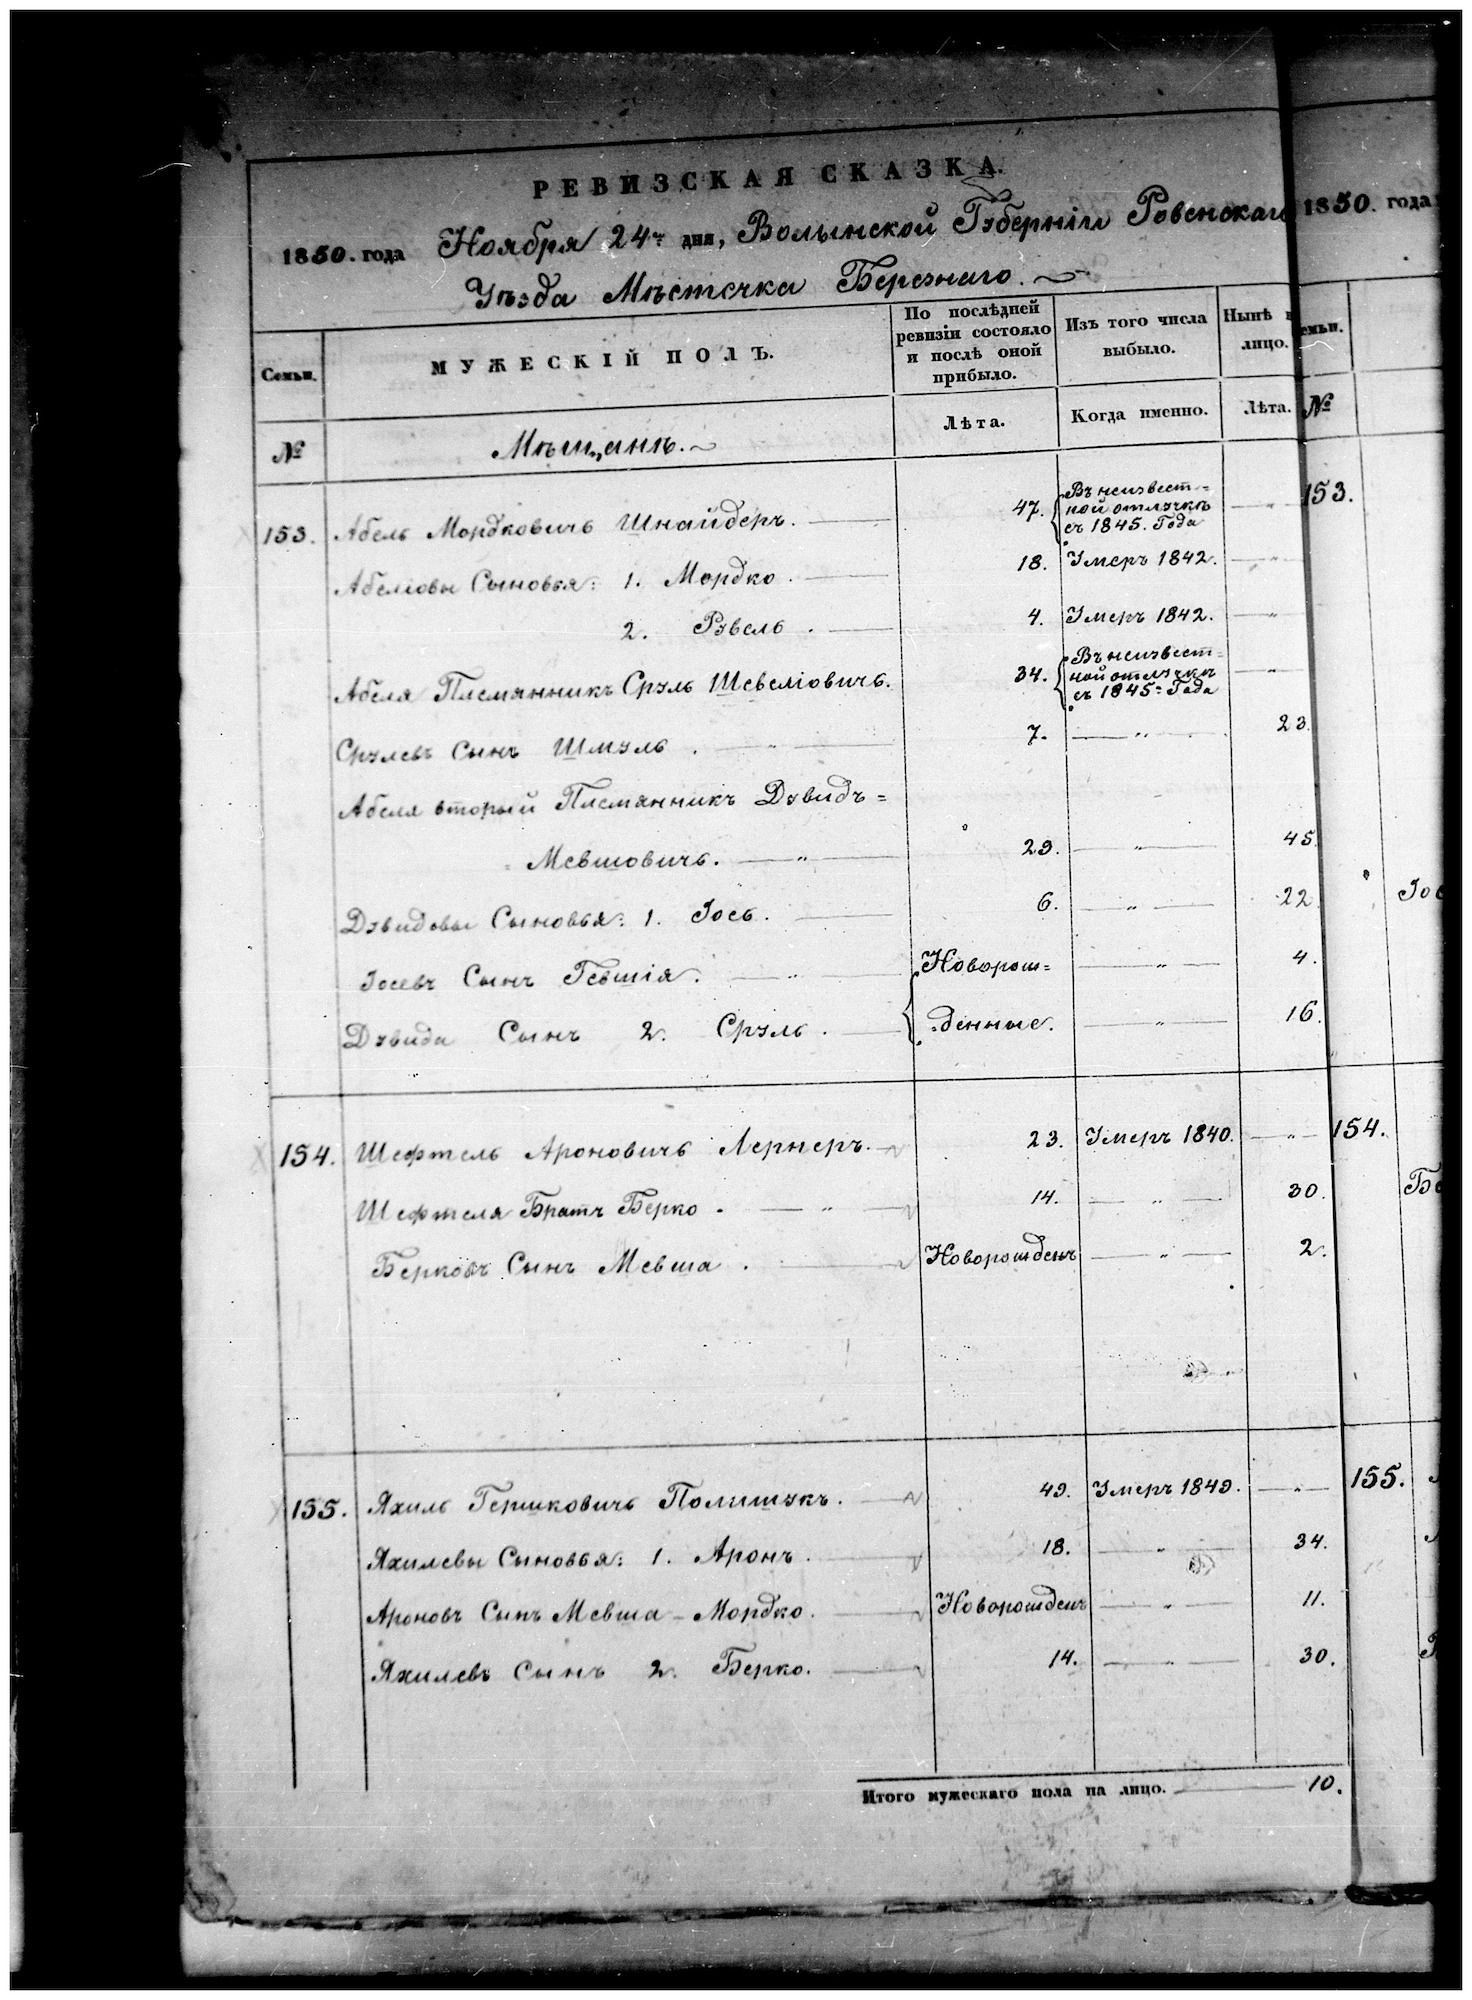 РЕВИЗСКАЯ СКАЗКА.
1850. года Ноября 24го дня, Волынской Губерніи Ровенскаго
Уѣзда Мѣстечка Березнаго.
1850. года
Семьи.
МУЖЕСКІЙ ПОЛЪ.
По послѣдней ревизіи состояло и послѣ оной прибыло.
Изъ того числа выбыло.
Нынѣ
лицо.
№
Мѣщанѣ.
Лѣта.
Когда именно.
Лѣта.
№
153. Абель Мордковичъ Шнайдеръ. 47. Въ неизвест=
ной отлучкѣ
съ 1845. Года
153.
Абеліовы Сыновья: 1. Мордко. 18. Умеръ 1842. "
2. Рувель. 4. Умеръ 1842. "
Абеля Племянникъ Сруль Шевеліовичь. 34. Въ неизвест=
ной отлучкѣ
съ 1845= Года
"
Срулевъ Сынъ Шмуль. " 7. " 23.
Абеля вторый Племянникъ Дувидъ=
Мевшовичь. " 29. " 45.
Дувидовы Сыновья: 1. Іось. 6. " 22.
Іосевъ Сынъ Гевшія. " Новорож= " 4.
Дувида Сынъ 2. Сруль. денные. " 16.
154. Шефтель Ароновичь Лернеръ. 23. Умеръ 1840. " 154.
Шефтеля Братъ Берко. " 14. " 30.
Берковъ Сынъ Мевша. Новорожденъ " 2.
155. Яхиль Гершковичь Полищукъ. 49. Умеръ 1849. " 155.
Яхилевы Сыновья: 1. Аронъ. 18. " 34.
Ароновъ Сынъ Мевша-Мордко. Новорожденъ " 11.
Яхилевъ Сынъ 2. Берко. 14. " 30.
Итого мужескаго пола на лицо. 10.